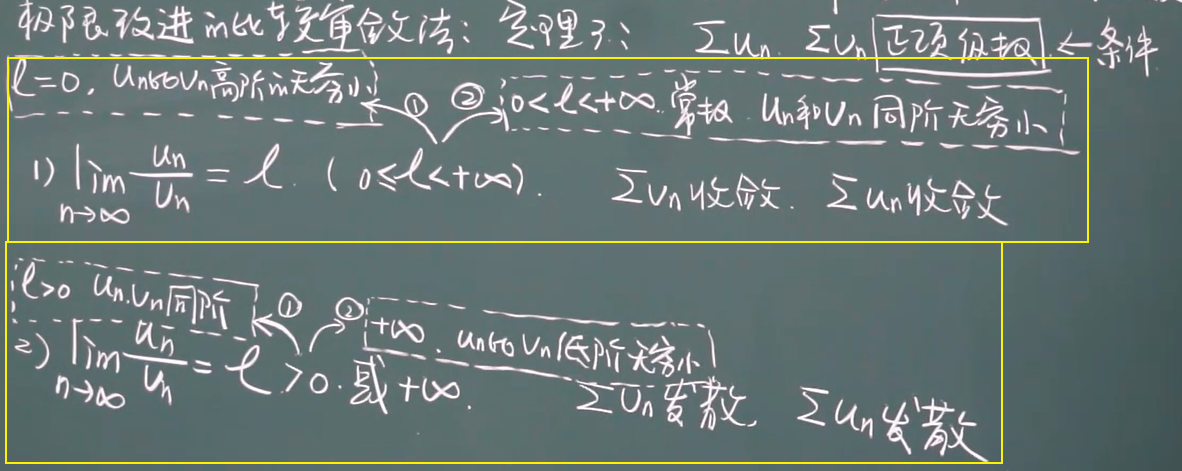 极限改进的比较审敛法: 定理3: Σuₙ. Σvₙ 正项级数 ← 条件
l=0, uₙ是vₙ高阶的无穷小 ① ② 0<l<+∞. 常数. uₙ和vₙ同阶无穷小
1) lim n→∞ uₙ/vₙ = l. (0≤l<+∞). Σvₙ收敛. Σuₙ收敛
l>0 uₙ.vₙ同阶 ① ② +∞. uₙ是vₙ低阶无穷小
2) lim n→∞ uₙ/vₙ = l >0. 或 +∞. Σvₙ发散, Σuₙ发散